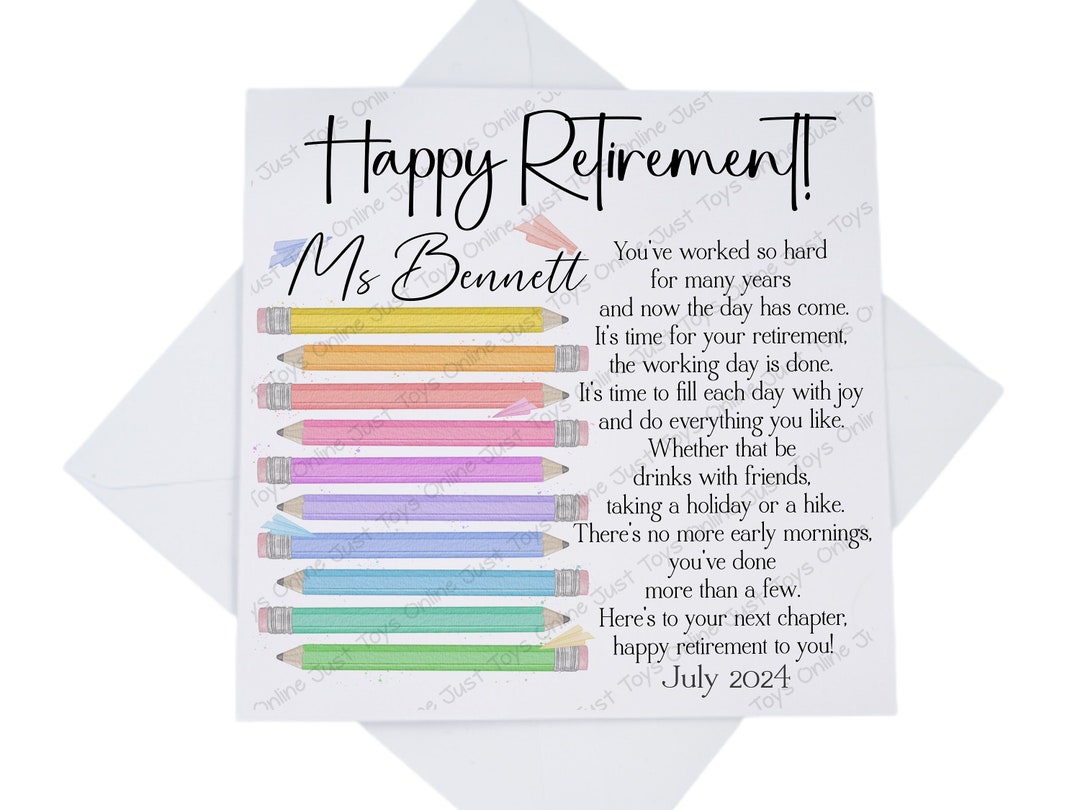 Happy Retirement!
Ms Bennett
You've worked so hard
for many years
and now the day has come.
It's time for your retirement,
the working day is done.
It's time to fill each day with joy
and do everything you like.
Whether that be
drinks with friends,
taking a holiday or a hike.
There's no more early mornings,
you've done
more than a few.
Here's to your next chapter,
happy retirement to you!
July 2024
Just Toys Online